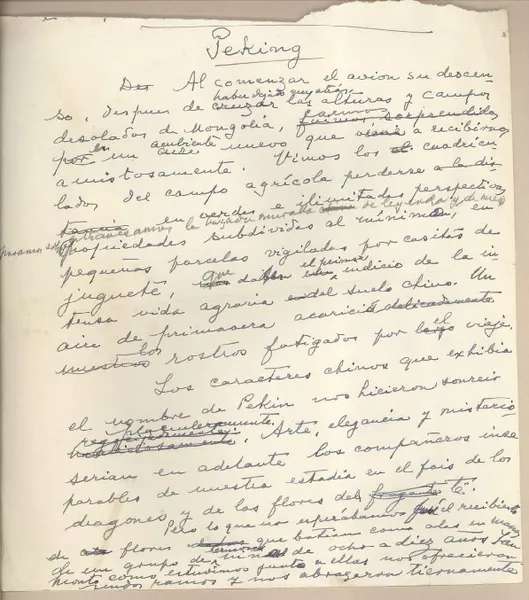 Peking
De Al comenzar el avion su descen
so, despues de cruzar haber dejado muy atrás las alturas y campos
desolados de Mongolia, fuimos sorprendidos caimos
por en un aire ambiente nuevo que venía a recibirnos
amistosamente. Vimos los cuadricu
lados del campo agrícola perderse a la dis
en verdes e ilimitadas perspectivas
atravesamos la muralla de leyenda y de
propiedades subdivididas al mínimo, en
pequeñas parcelas vigiladas por casitas de
juguete, que daban el primer indicio de la in
tensa vida agraria del suelo chino. Un
aire de primavera acarició delicadamente
nuestros los rostros fatigados por el largo viaje.
Los caracteres chinos que exhibia
el nombre de Pekin nos hicieron sonreir
placenteramente. Arte, elegancia y misterio
serian en adelante los compañeros inse
parables de nuestra estadía en el país de los
dragones y de las flores del té.
Pero lo que no esperábamos fué el recibimiento
de flores que batian como alas en manos
de un grupo de niñas de ocho a diez años
pronto como estuvimos junto a ellas nos ofrecieron
ramos y nos abrazaron tiernamente